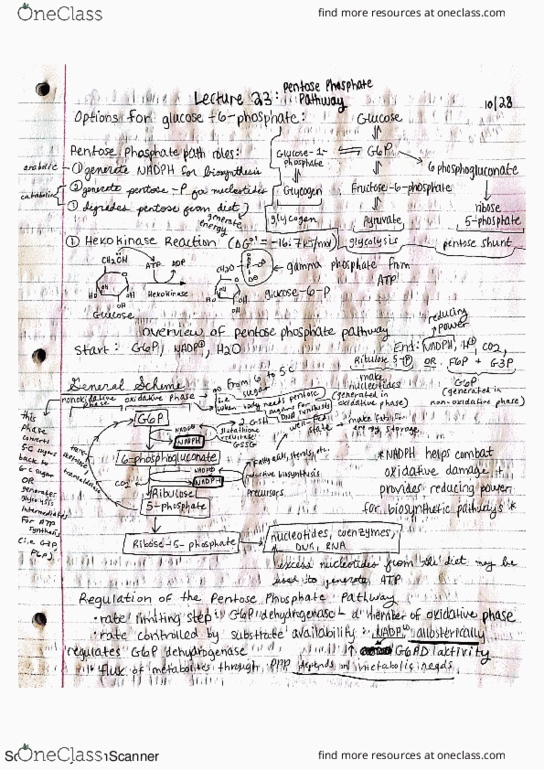 OneClass
find more resources at oneclass.com
Lecture 23: Pentose Phosphate Pathway
10/28
Options for glucose-6-phosphate:
Glucose
Glucose-1-phosphate
G6P
6 phosphogluconate
Glycogen
Fructose-6-phosphate
ribose 5-phosphate
glycogen
Pyruvate
glycolysis
pentose shunt
Pentose Phosphate path roles:
anabolic
① generate NADPH for biosynthesis
catabolic
② generate pentose-P for nucleotides
degrades pentose from diet
generate energy
① Hexokinase Reaction (ΔG°' = -16.7 kJ/mol)
CH2OH
ATP
ADP
Hexokinase
Glucose
CH2O
gamma phosphate from ATP
glucose-6-P
overview of pentose phosphate pathway
reducing power
Start: G6P, NADP⊕, H2O
End: NADPH, H⊕, CO2,
Ribulose 5-P OR F6P + G3P
make nucleotides
(generated in oxidative phase)
G6P
(generated in non-oxidative phase)
General Scheme
nonoxidative
oxidative phase
go from 6 to 5 C sugar
when body needs pentose sugars for DNA synthesis
this phase converts 5C sugars back to 6-C sugar OR generates glycolysis intermediates for ATP synthesis
G6P
NADP⊕
NADPH
2 GSH
glutathione reductase
GSSG
well-fed state
make fats for energy storage
6-phosphogluconate
NADP⊕
NADPH
CO2
Fatty acids, sterols, etc.
reductive biosynthesis
Precursors
Ribulose 5-phosphate
*NADPH helps combat
oxidative damage it
provides reducing power
for biosynthetic pathways*
Ribose-5-phosphate
nucleotides, coenzymes, DNA, RNA
excess nucleotides from diet may be
used to generate ATP
Regulation of the Pentose Phosphate Pathway
• rate limiting step: G6P dehydrogenase - a member of oxidative phase
• rate controlled by substrate availability: NADP⊕ allosterically
regulates G6P dehydrogenase
↑ G6PD activity
flux of metabolites through PPP depends on metabolic needs
OneClass
Scanner
find more resources at oneclass.com